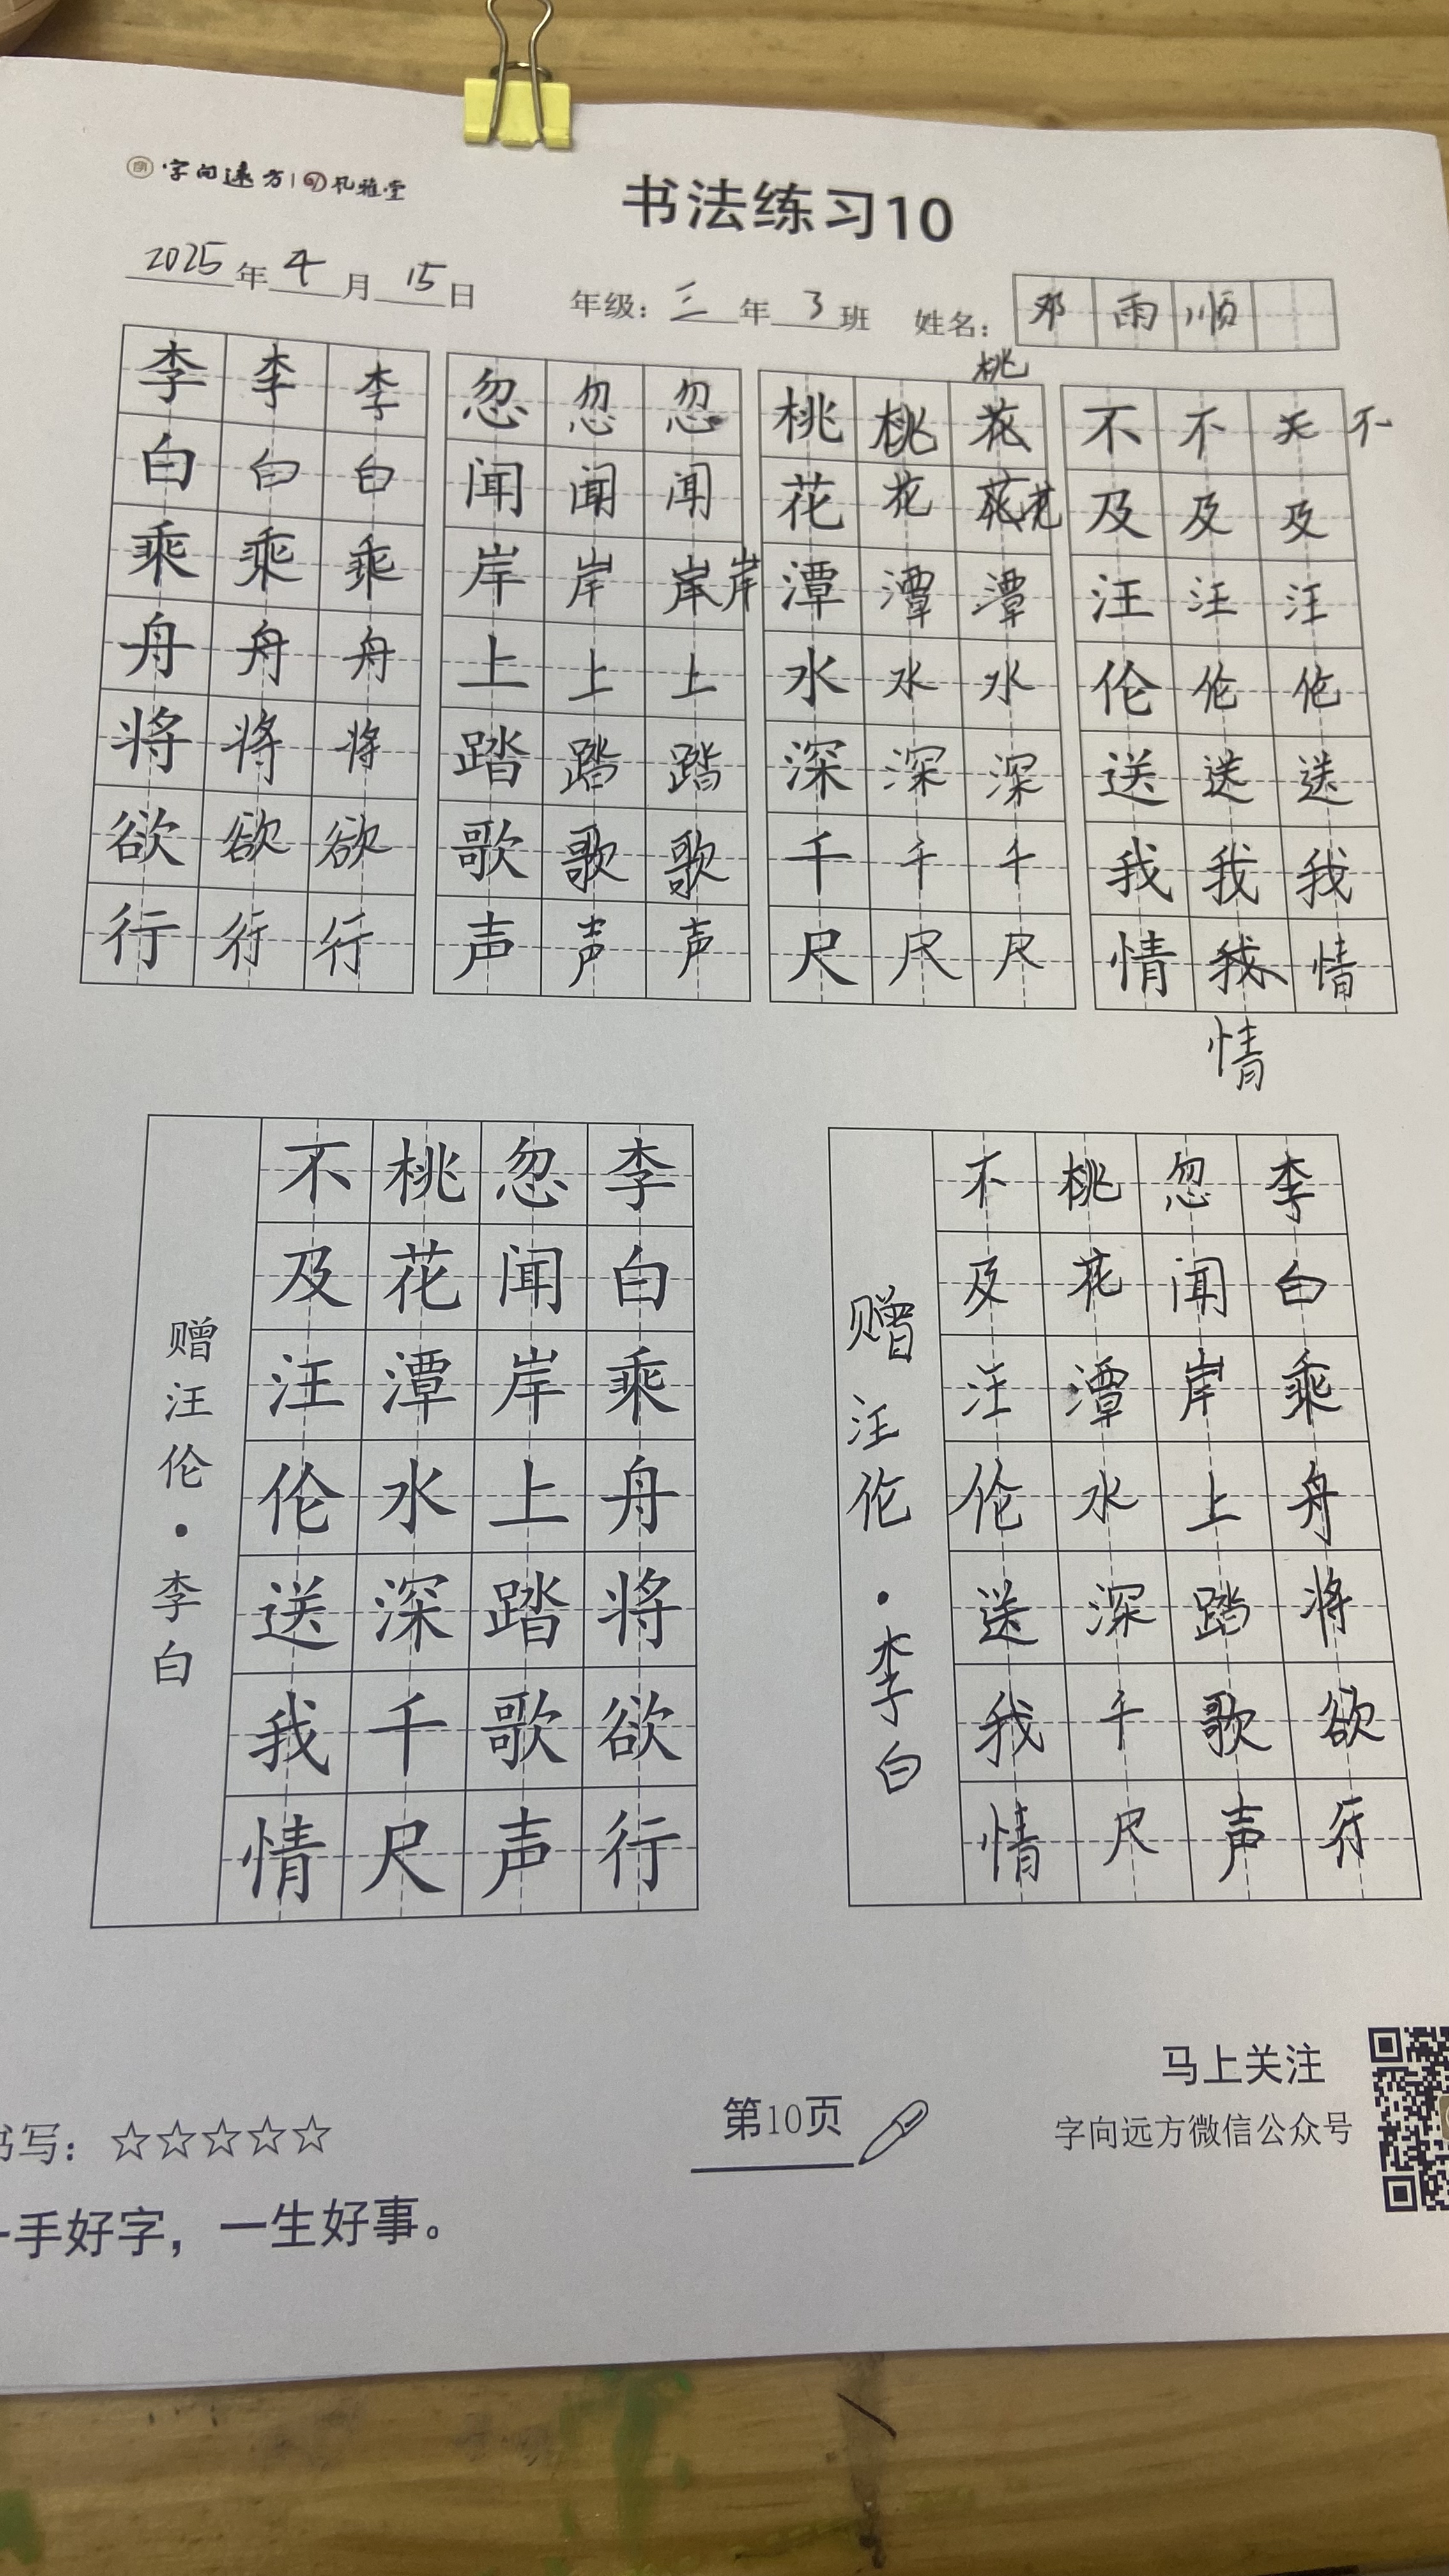 字向远方 | 孔雅堂
书法练习10
2025年4月15日 年级：三年3班 姓名：邓雨顺
李李李 忽忽忽 桃桃花桃 不不不
白白白 闻闻闻 花花花 及及及
乘乘乘 岸岸岸岸 潭潭潭 汪汪汪
舟舟舟 上上上 水水水 伦伦伦
将将将 踏踏踏 深深深 送送送
欲欲欲 歌歌歌 千千千 我我我
行行行 声声声 尺尺尺 情我情
情
李白乘舟将欲行
忽闻岸上踏歌声
桃花潭水深千尺
不及汪伦送我情
赠汪伦·李白
李白乘舟将欲行
忽闻岸上踏歌声
桃花潭水深千尺
不及汪伦送我情
赠汪伦·李白
书写：☆☆☆☆☆
一手好字，一生好事。
第10页
马上关注
字向远方微信公众号